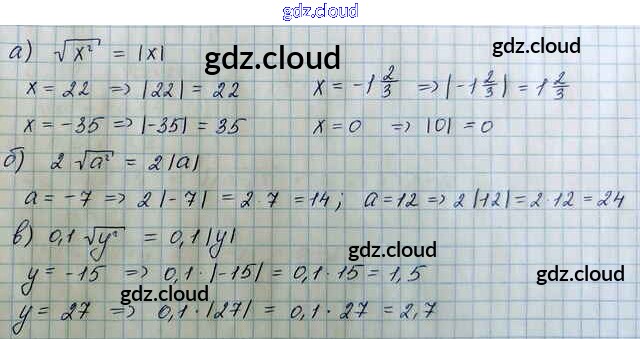 gdz.cloud
а) √x² = |x|
gdz.cloud
gdz.cloud
x = 22 => |22| = 22 x = -1 2/3 => |-1 2/3| = 1 2/3
x = -35 => |-35| = 35 x = 0 => |0| = 0
б) 2 √a² = 2|a|
a = -7 => 2|-7| = 2·7 = 14; a = 12 => 2|12| = 2·12 = 24
в) 0,1 √y² = 0,1|y|
gdz.cloud
y = -15 => 0,1·|-15| = 0,1·15 = 1,5
gdz.cloud
gdz.cloud
y = 27 => 0,1·|27| = 0,1·27 = 2,7